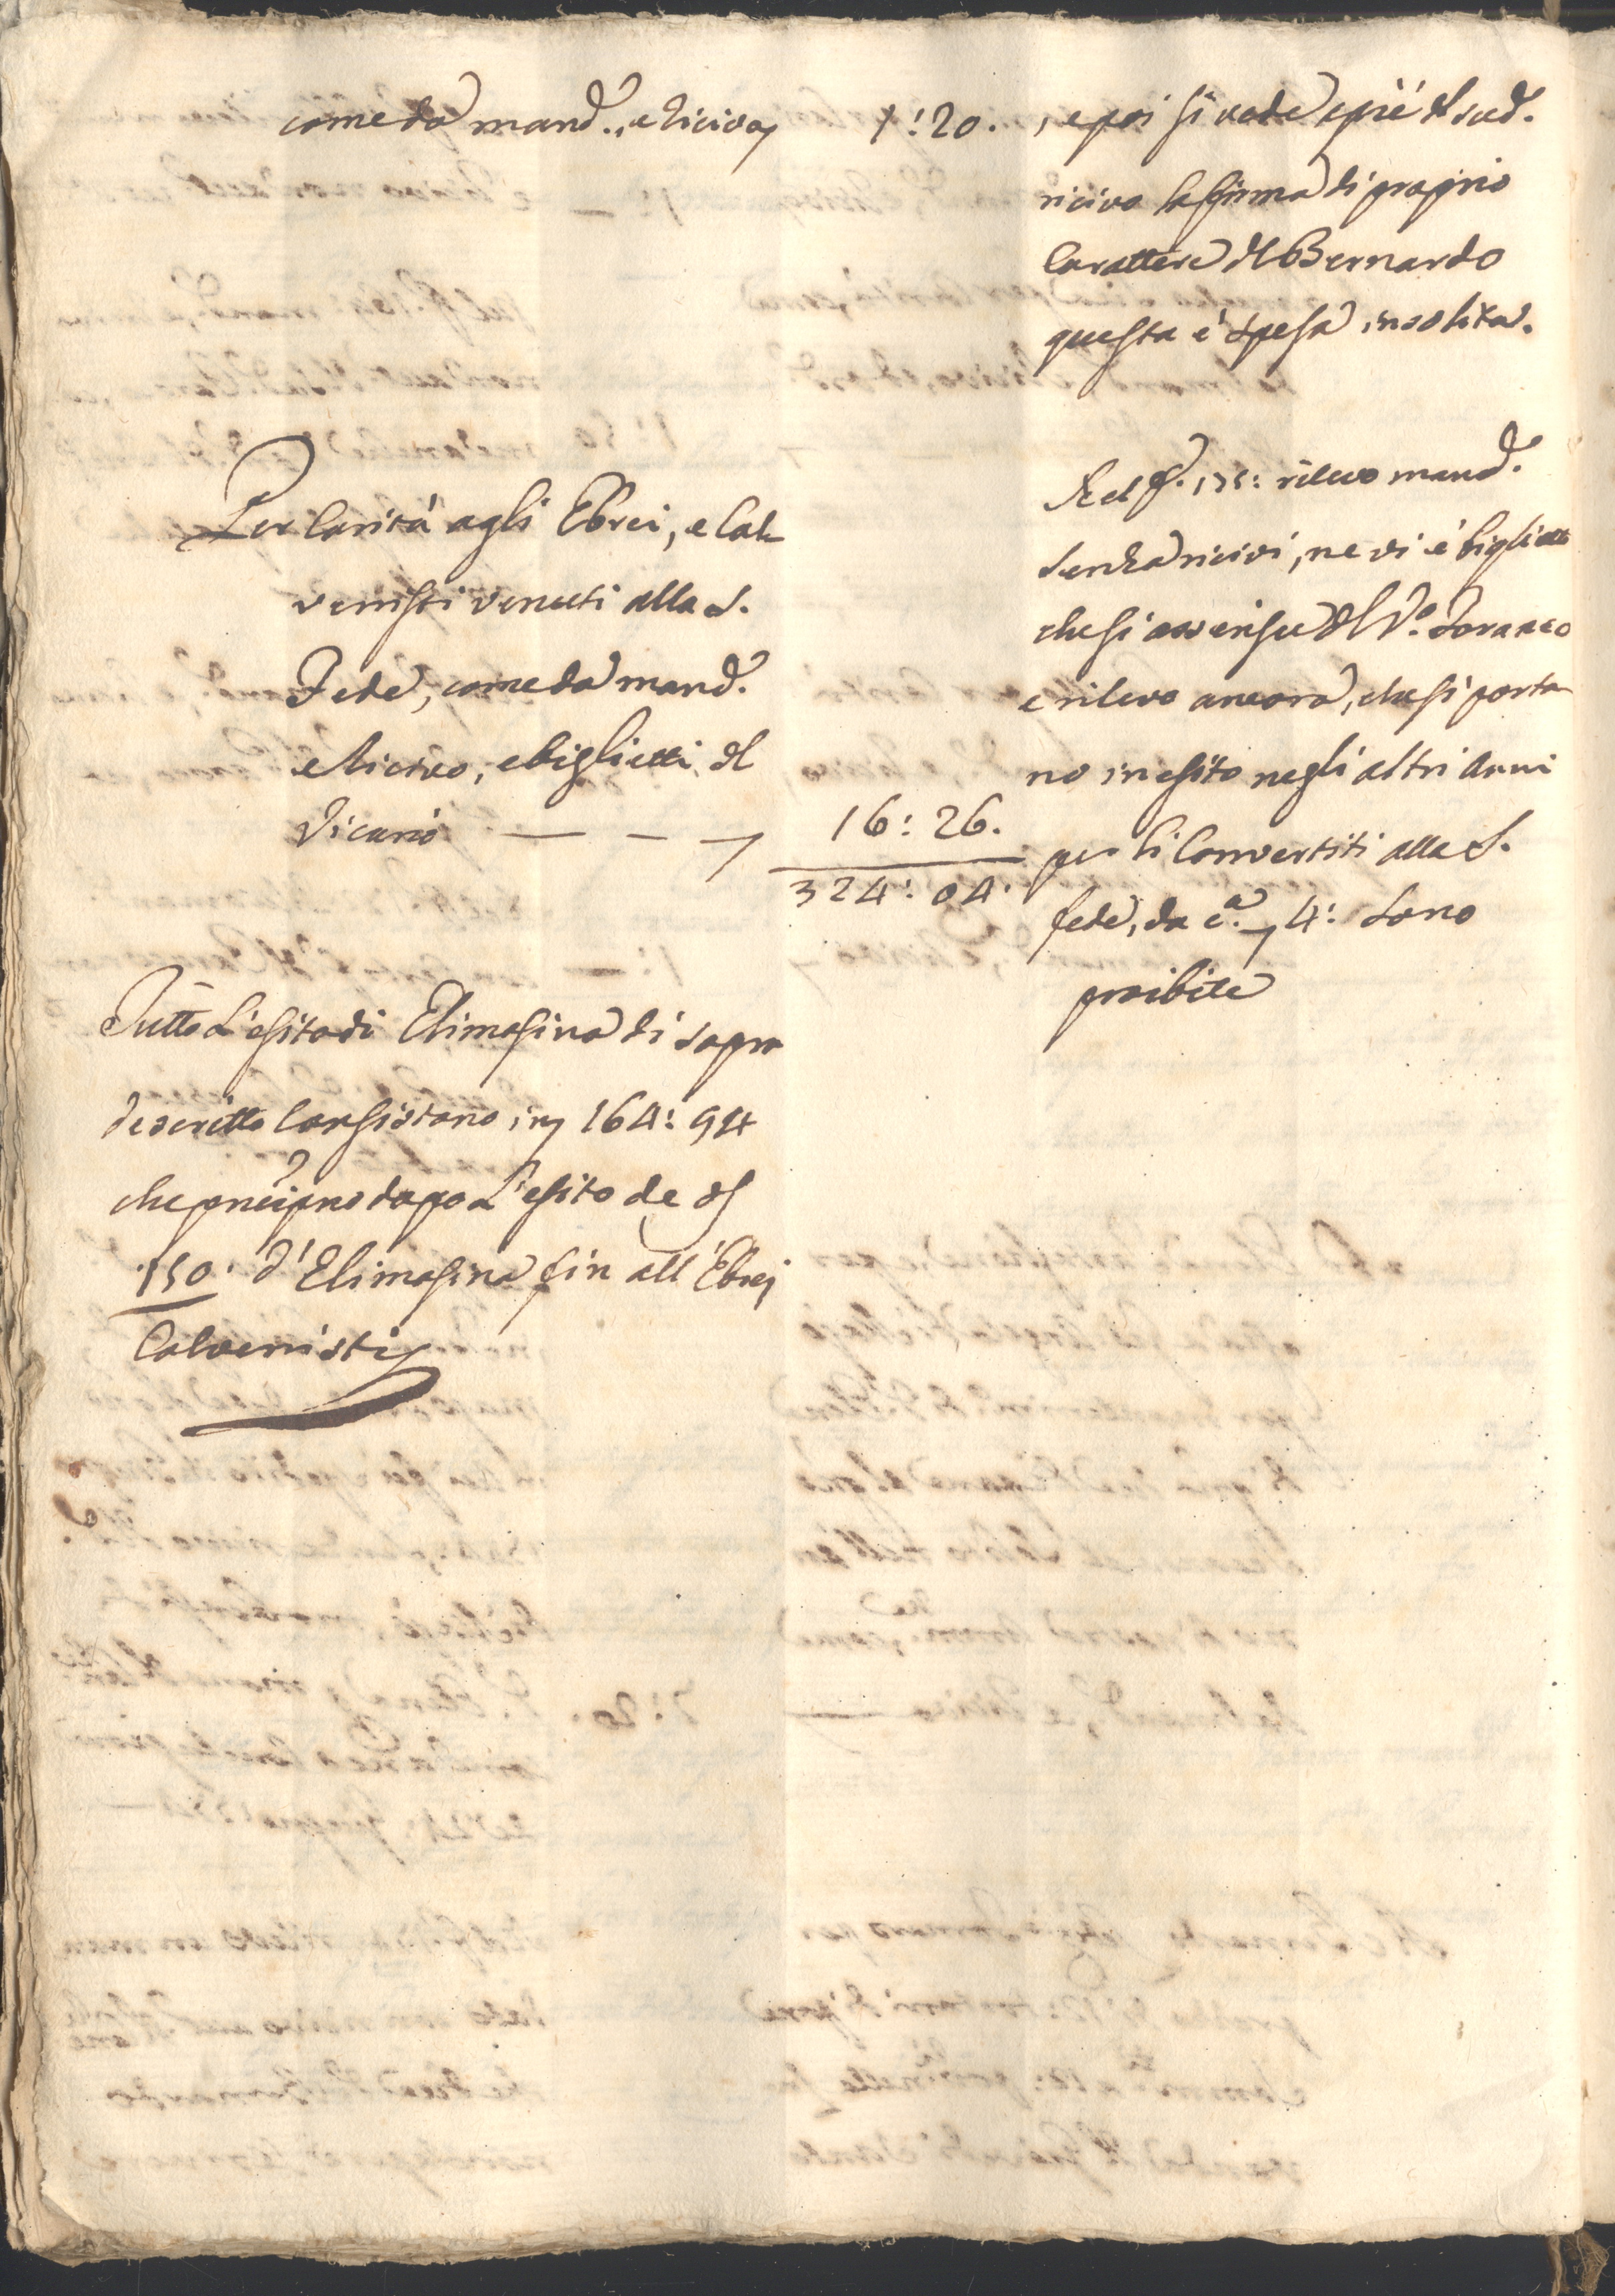 come da mand.º, e ricivo 1:20.
Per Carità agli Ebrei, e Cal-
venisti venuti alla S.
Fede, come da mand.º
e ricivo, e biglietti del
Vicario — — — 16:26.
324:04.
Tutto L'esito di Elimosina di sopra
descritto Consistono in 164:94
che dopo L'esito de
150. d'Elimosina fin all'Ebrei
Calvenisti
, e poi si vede a piè del sud.º
ricivo la firma di proprio
Carattere del Bernardo
questa è spesa insolita.
Nel f. rilevo mand.º
senza ricivi, ne vi è biglietto
che si asserisce del V.º Foraneo
e rilevo ancora, che si porta-
no in esito negli altri anni
per li Convertiti alla S.
fede, da c.ª 4: sono
proibite